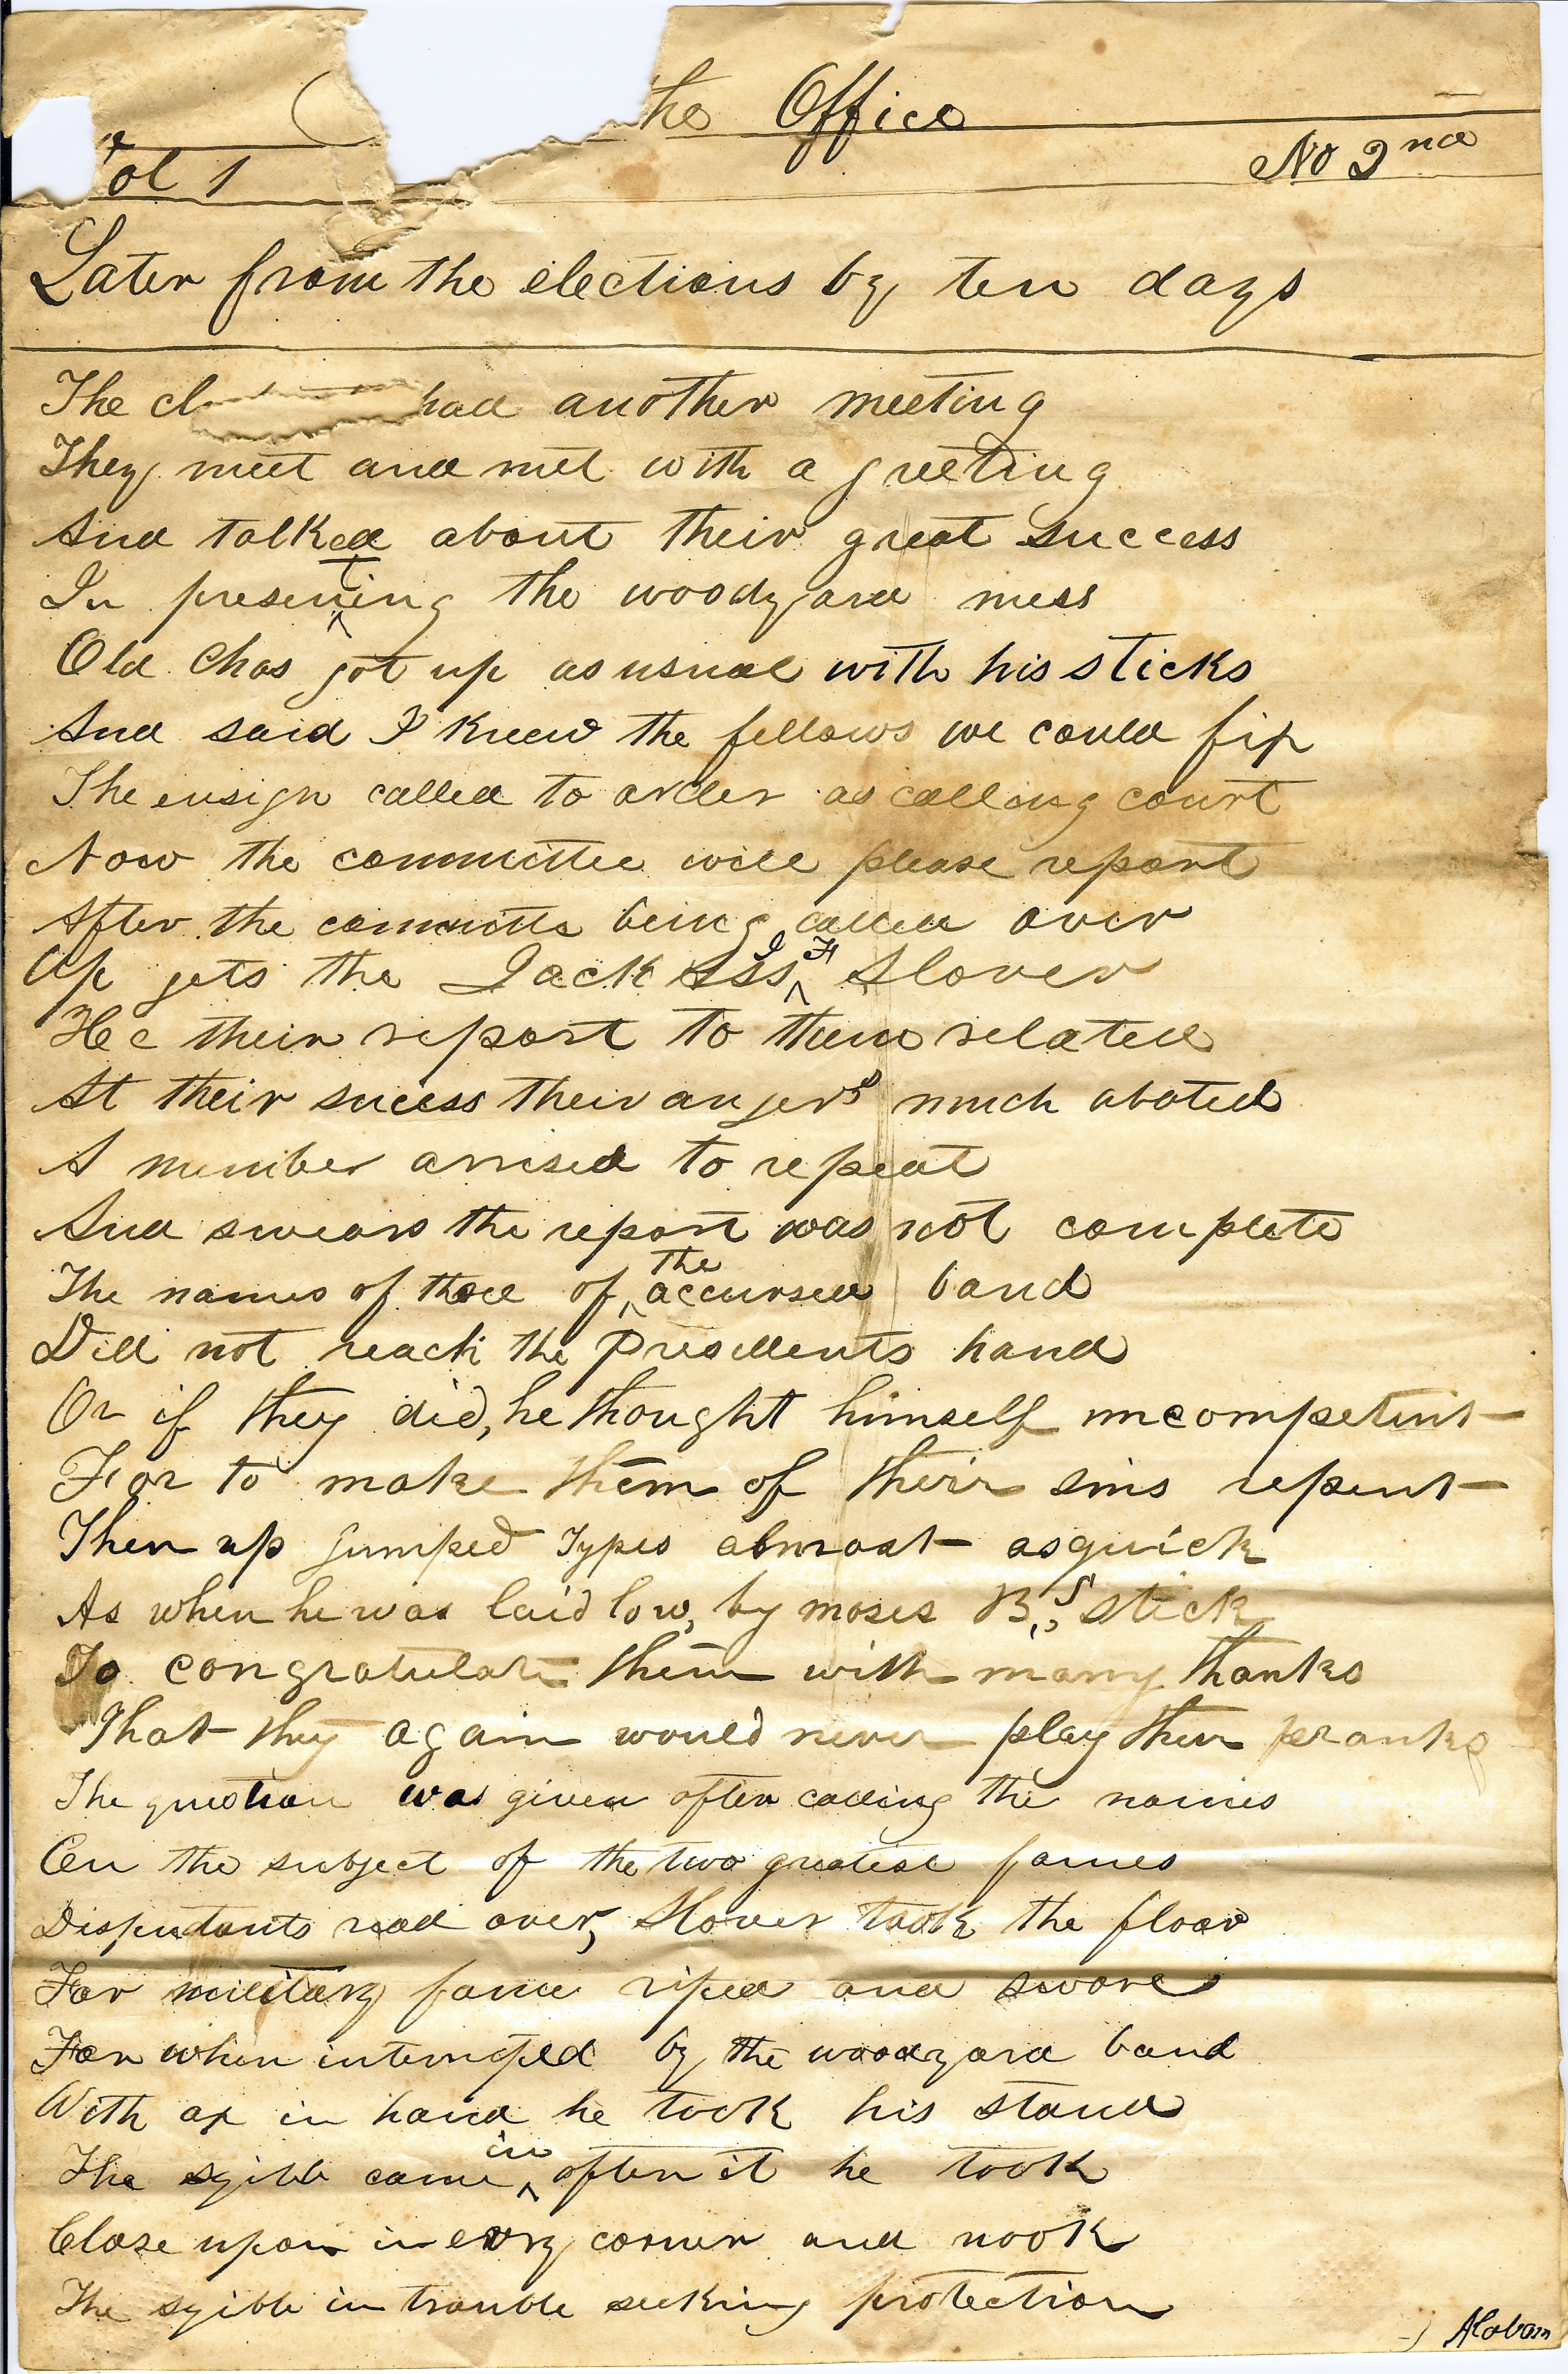 he Office
ol 1 No 2nd
Later from the elections by ten days
The cl had another meeting
They meet and met with a greeting
And talked about their great success
In presenting the woodyard mess
Old Chas got up as usual with his sticks
And said I knew the fellows we could fix
The ensign called to order as calling court
Now the committee will please report
After the committe being called over
Up gets the Jack Ass J H Slover
He their report to them related
At their sucess their angers much abated
A member arrised to repeat
And swears the report was not complete
The names of those of the accursed band
Did not reach the Presidents hand
Or if they did, he thought himself uncompetent
For to make them of their sins repent
Then up jumped Types almost as quick
As when he was laid low, by moses B,,s stick
To congratulate them with many thanks
That they again would never play their pranks
The question was given after calling the names
On the subject of the two greatest fames
Disputants read over, Slover took the floor
For military fame riped and swore
For when interrupted by the woodyard band
With ax in hand he took his stand
The sgible came in after it he took
Close upon in evry corner and nook
The sgible in trouble seeking protection
Alabam